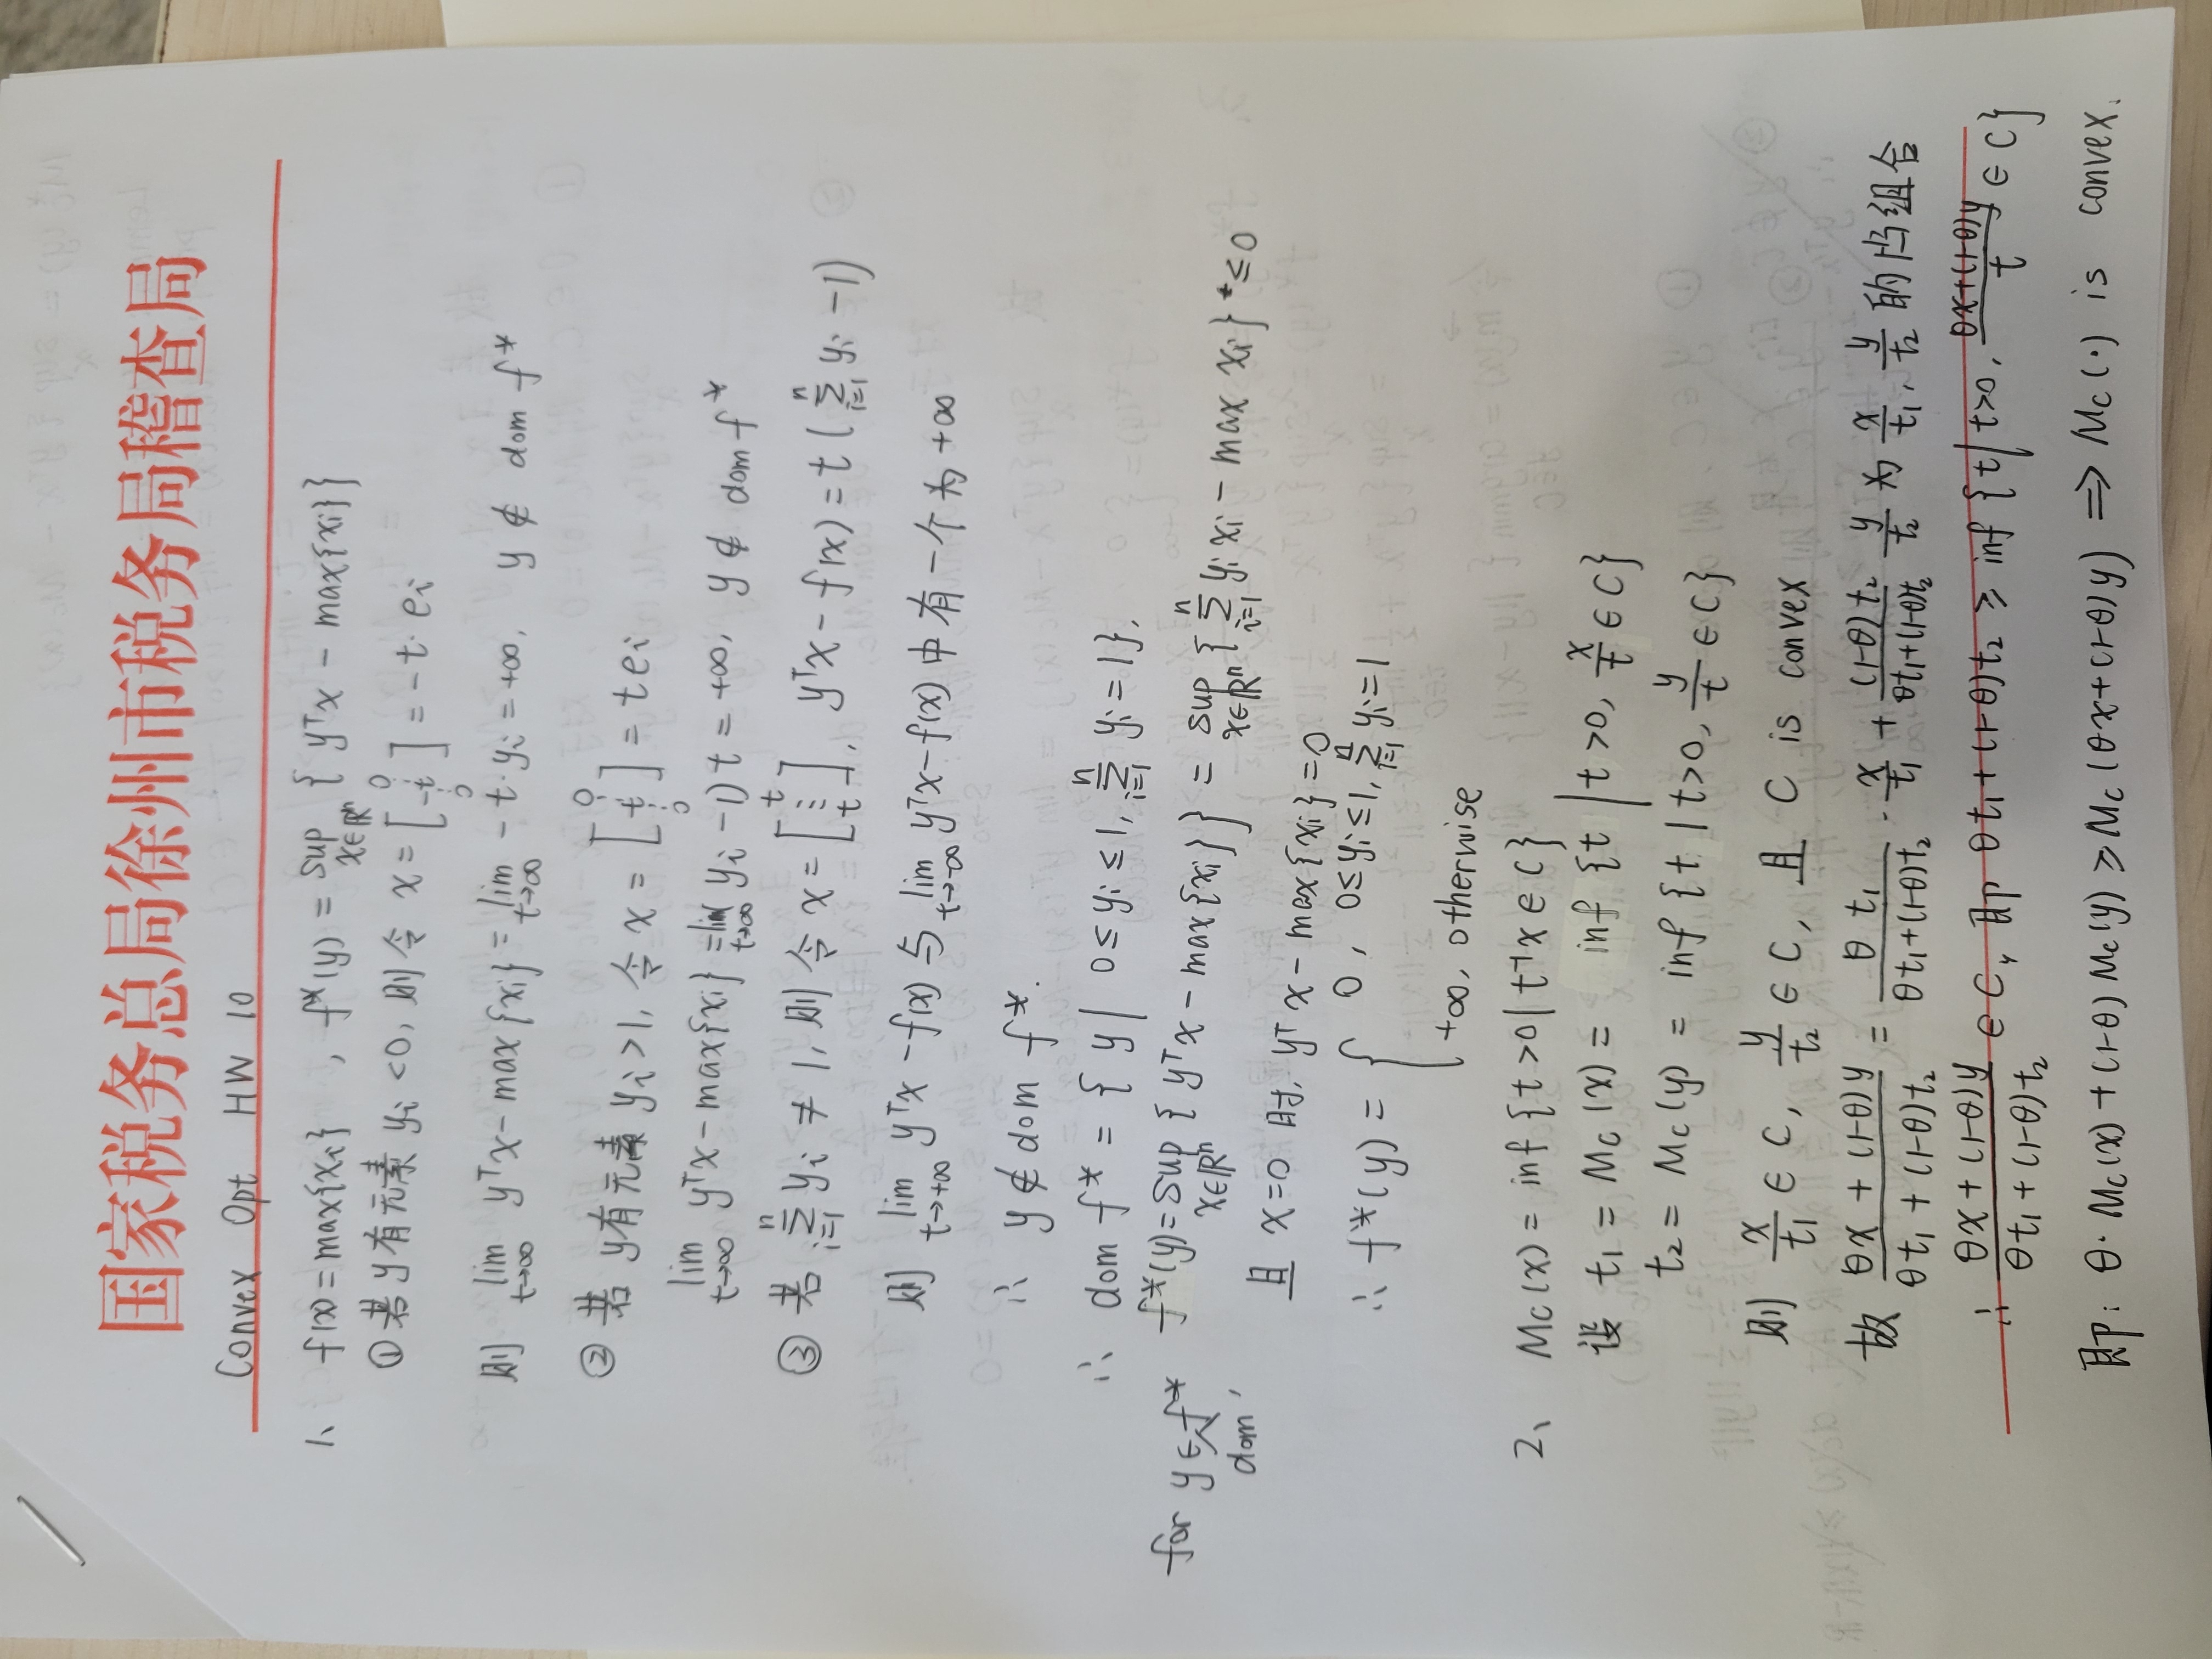 国家税务总局徐州市税务局稽查局
Convex Opt HW 10
1、 f(x) = max{xi} , f*(y) = sup x∈ℝⁿ { yᵀx - max{xi}}
① 若 y 有元素 yi < 0, 则令 x = [0 ⋮ -t ⋮ 0] = -t· ei
则 lim t→∞ yᵀx - max{xi} = lim t→∞ - t·yi = +∞, y ∉ dom f*
② 若 y有元素 yi > 1, 令 x = [0 ⋮ t ⋮ 0] = t ei
lim t→∞ yᵀx - max{xi} = lim t→∞ yi - 1) t = +∞, y ∉ dom f*
③ 若 n Σ i=1 yi ≠ 1, 则令 x = [t ⋮ t], yᵀx - f(x) = t ( n Σ i=1 yi - 1)
则 lim t→+∞ yᵀx - f(x) 与 lim t→-∞ yᵀx - f(x) 中有一个为 +∞
∴ y ∉ dom f*.
∴ dom f* = { y | 0 ≤ yi ≤ 1, n Σ i=1 yi = 1},
for y ∈ dom f*, f*(y) = sup x∈ℝⁿ { yᵀx - max{xi}} = sup x∈ℝⁿ { n Σ i=1 yi xi - max xi} ≤ 0
且 x = 0 时, yᵀx - max{xi} = 0
∴ f*(y) = { 0, 0 ≤ yi ≤ 1, n Σ i=1 yi = 1
+∞, otherwise
2、 Mc(x) = inf {t > 0 | t⁻¹x ∈ C}
设 t₁ = Mc(x) = inf {t | t > 0, x/t ∈ C}
t₂ = Mc(y) = inf {t | t > 0, y/t ∈ C}
则 x/t₁ ∈ C, y/t₂ ∈ C, 且 C is convex
故 (θx + (1-θ)y)/(θt₁ + (1-θ)t₂) = θ t₁/(θt₁+(1-θ)t₂) · x/t₁ + (1-θ)t₂/(θt₁+(1-θ)t₂) y/t₂ 为 x/t₁, y/t₂ 的凸组合
∴ (θx + (1-θ)y)/(θt₁ + (1-θ)t₂) ∈ C, 即 θt₁ + (1-θ)t₂ ≥ inf {t | t > 0, (θx+(1-θ)y)/t ∈ C}
即: θ· Mc(x) + (1-θ) Mc(y) ≥ Mc(θx+(1-θ)y) ⟹ Mc(·) is convex.